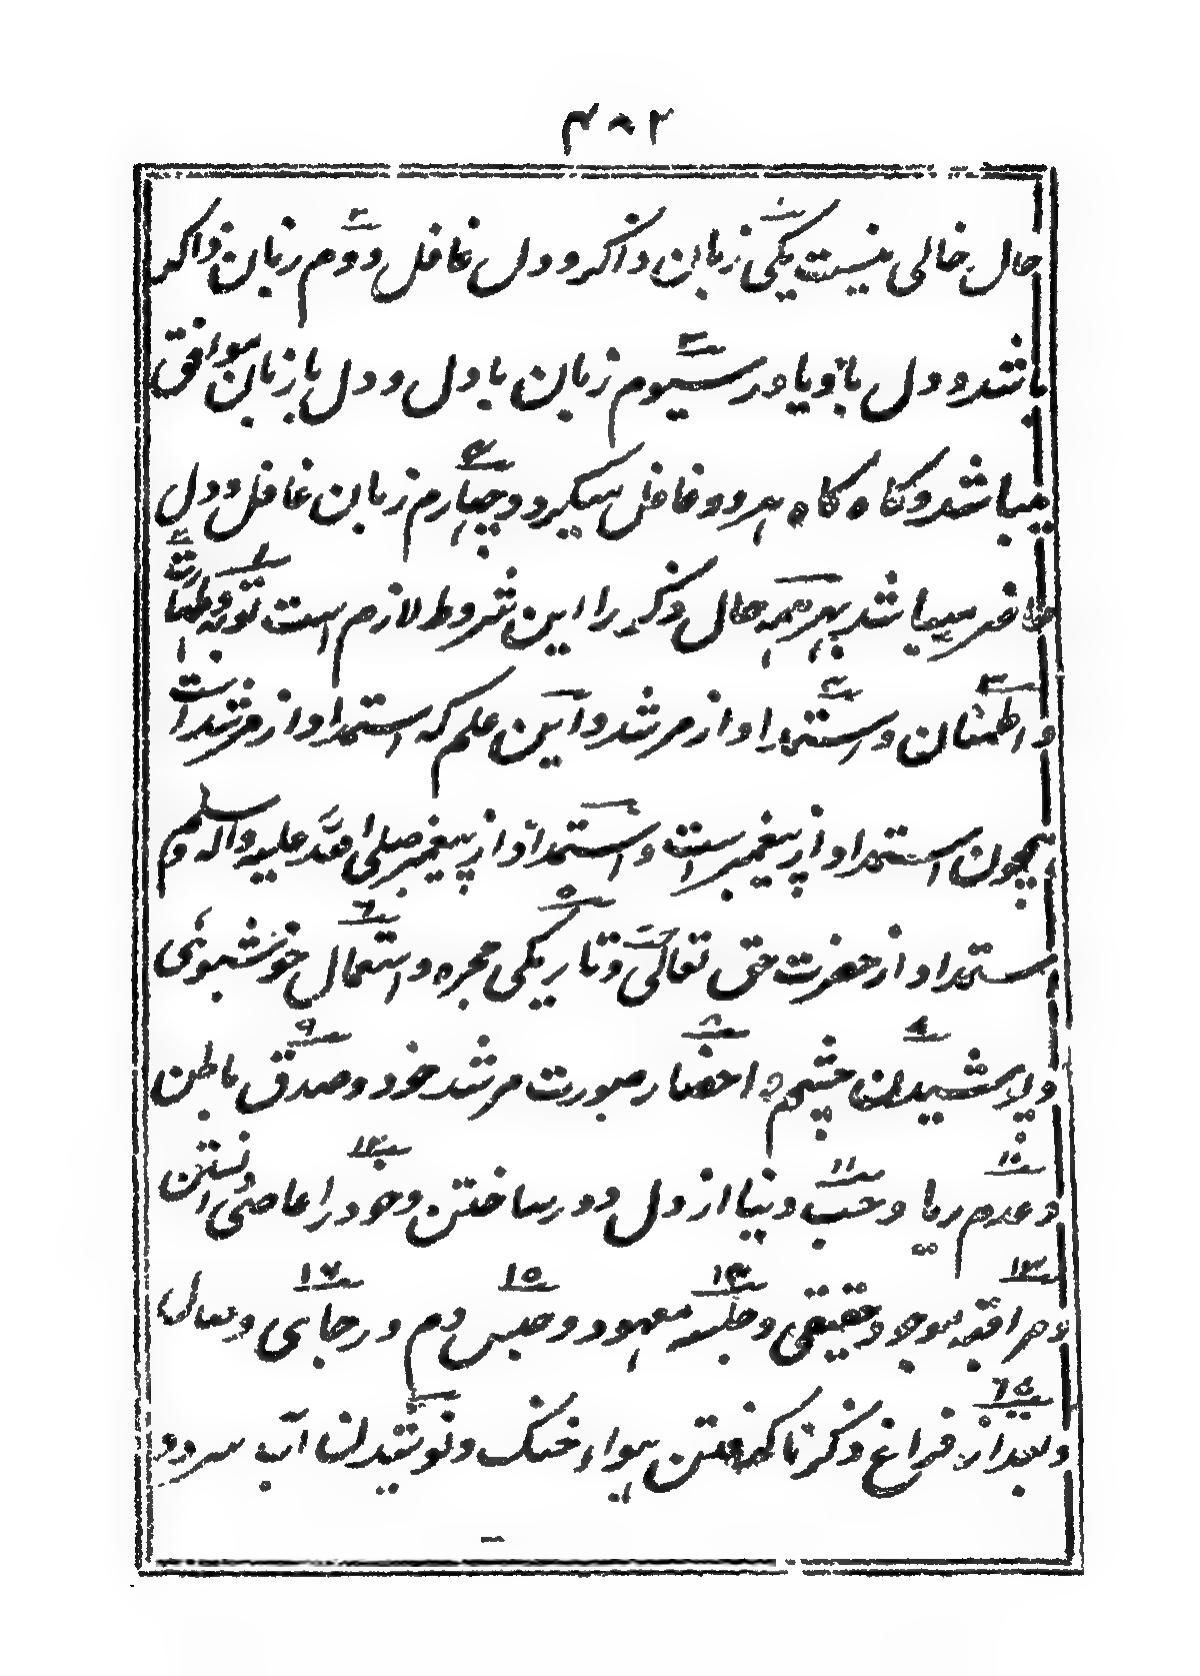 ۴۸۲
حال خالی نیست یکی زبان ذاکر و دل غافل دوم زبان ذاکر
باشد و دل با و یاور سیوم زبان با دل و دل با زبان موافق
میباشد و گاه گاه هر دو غافل میگردد چهارم زبان غافل و دل
حاضر میباشد بهر همه حال ذکر را این شروط لازم است توبه و طهارت
و اطمنان و استمداد از مرشد و این علم که استمداد از مرشد است
همچون استمداد از پیغمبر است و استمداد از پیغمبر صلی الله علیه و آله وسلم
استمداد از حضرت حق تعالی و تاریکی حجره و استعمال خوشبوئی
و پوشیدن چشم و احضار صورت مرشد خود و صدق باطن
و عدم ریا و حب دنیا از دل دور ساختن و خود را عاصی دانستن
و مراقبه موجود حقیقی و جلسه معهود و حبس دم در جای وصال
و بعد از فراغ ذکر ناگرفتن هوای خنک و نوشیدن آب سرد و